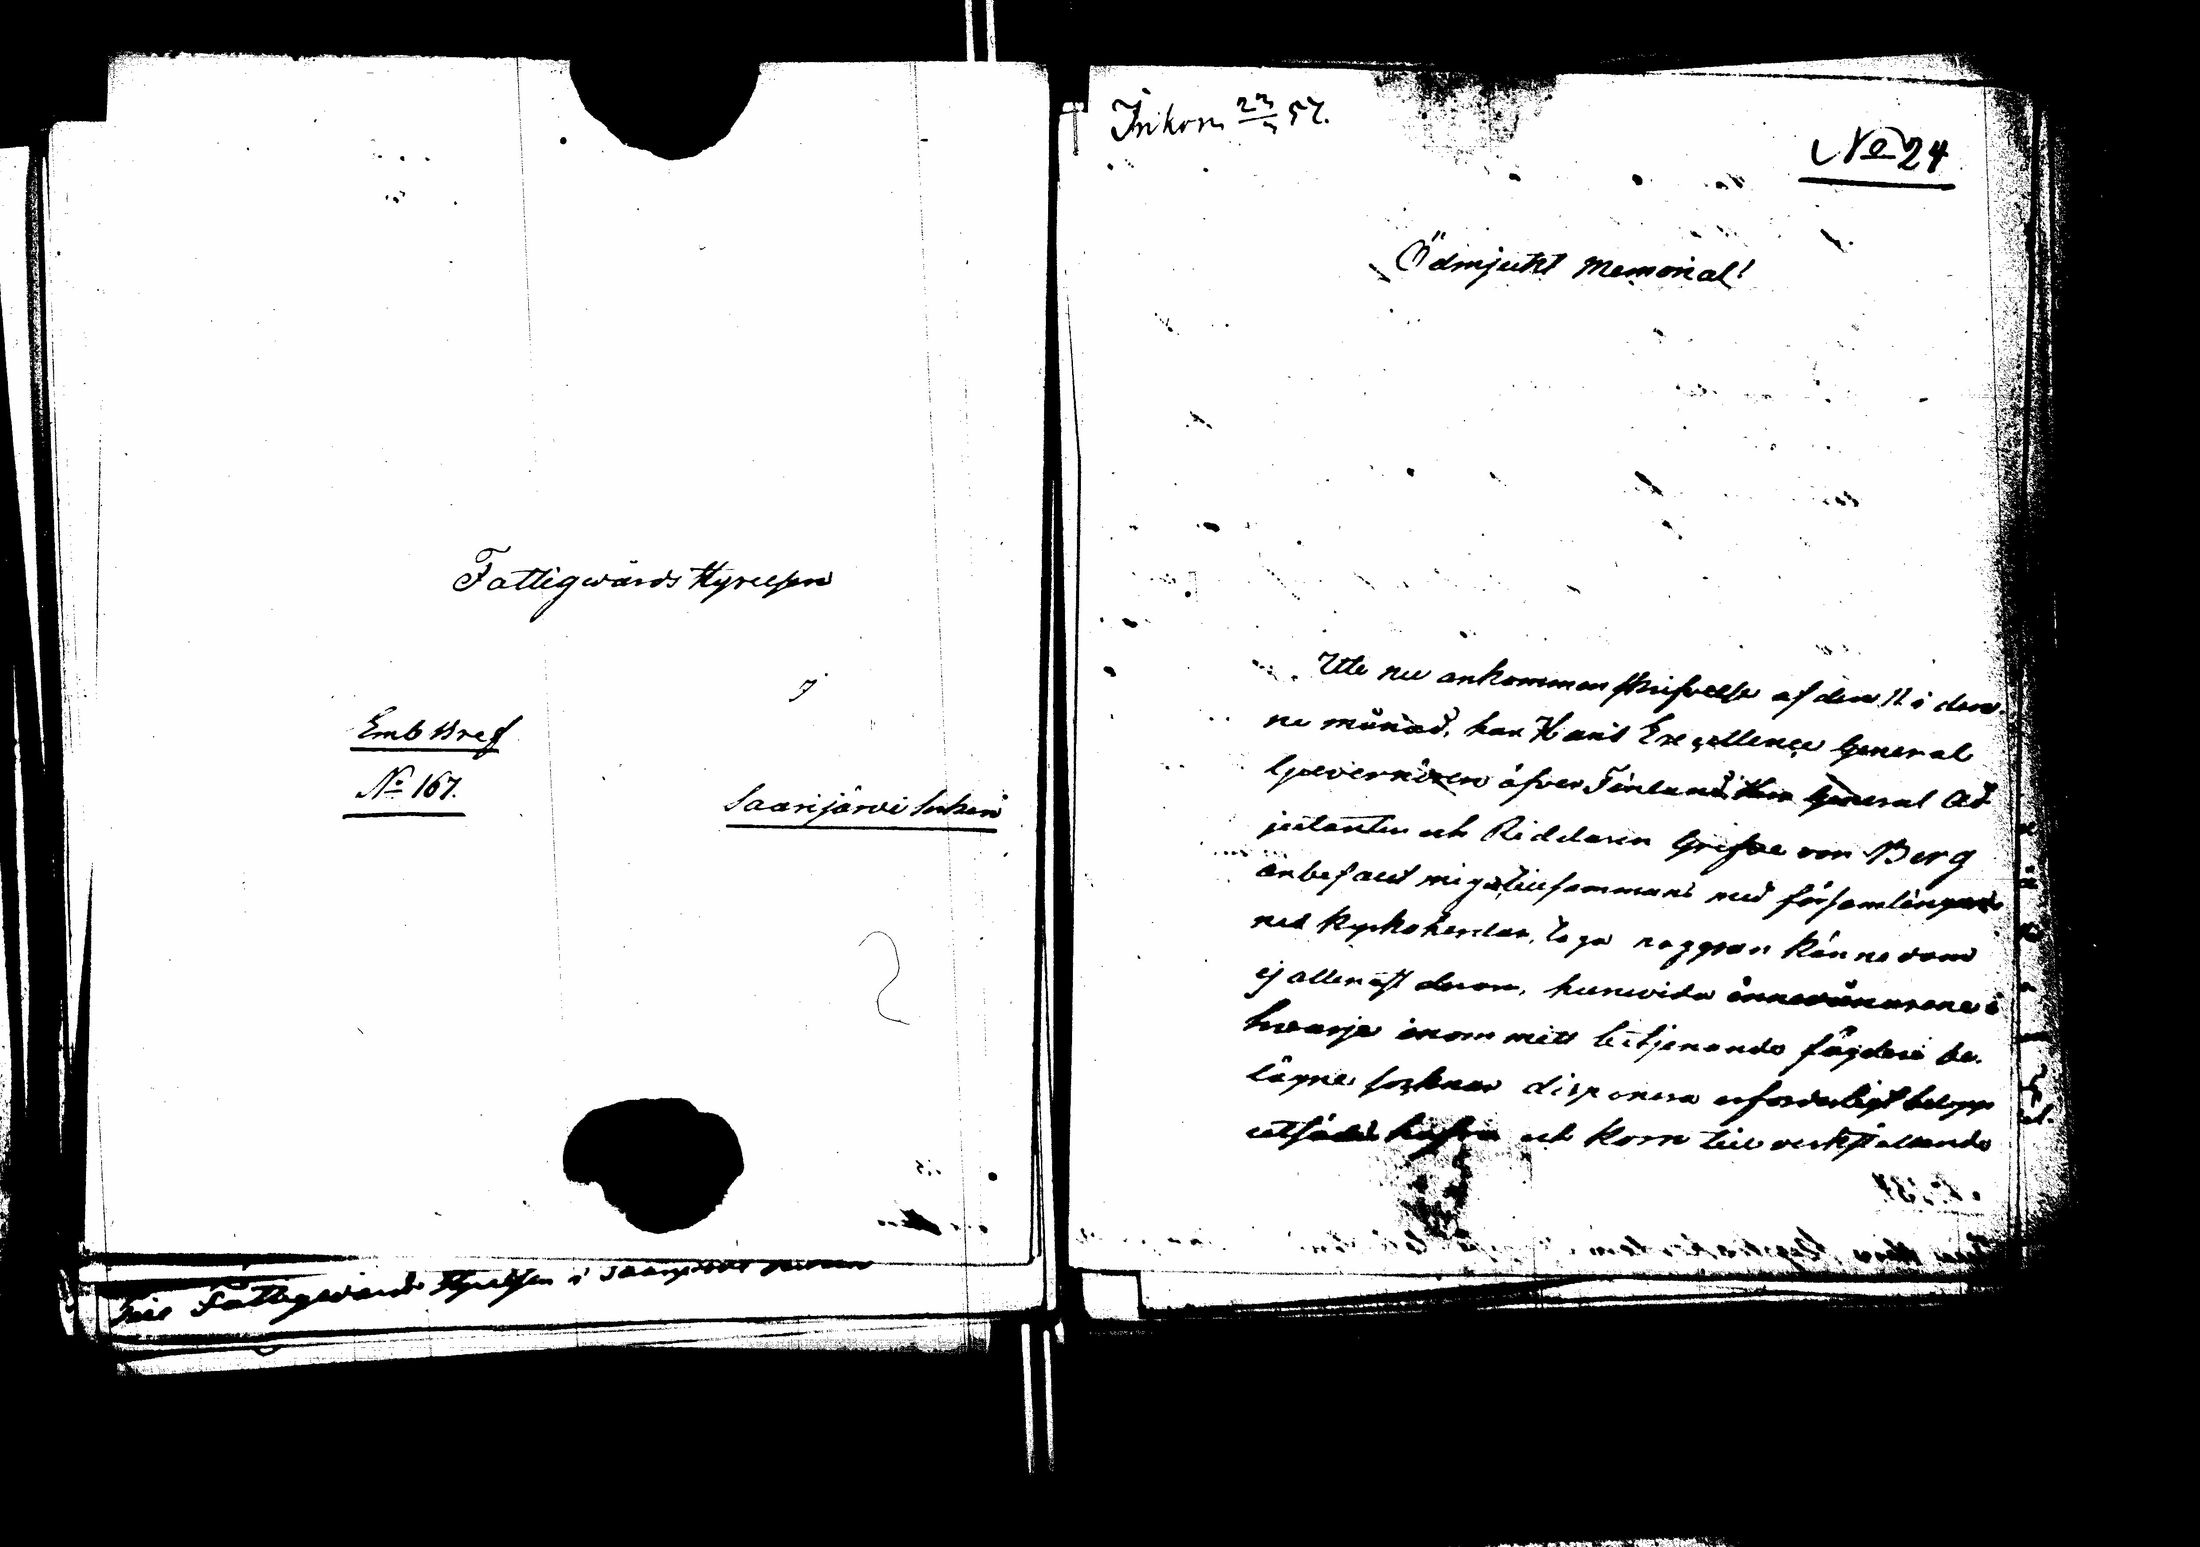 Fattigwårds styrelsen
i
Emb Bref
No 167.
Saarijärvi Socken
Till Fattigwårds Styrelsen i Saarijärvi Socken
Inkom 23/3 57.
No 24
Ödmjukt Memorial!
Uti nu ankommen skrifvelse af den 11 i den-
ne månad, har Hans Excellence General
Gouvernören öfver Finland Herr General Ad-
jutanten och Riddaren Grefve von Berg
anbefalt mig att tillsammans med församlingar-
nes kyrkoherdar, taga noggran kännedom
ej allenast derom, huruvida innevånarene i
hvarje inom mitt betjenande fögderi be-
lägne socknar disponera erforderligt belopp
utsädes hafra och korn till verkställande